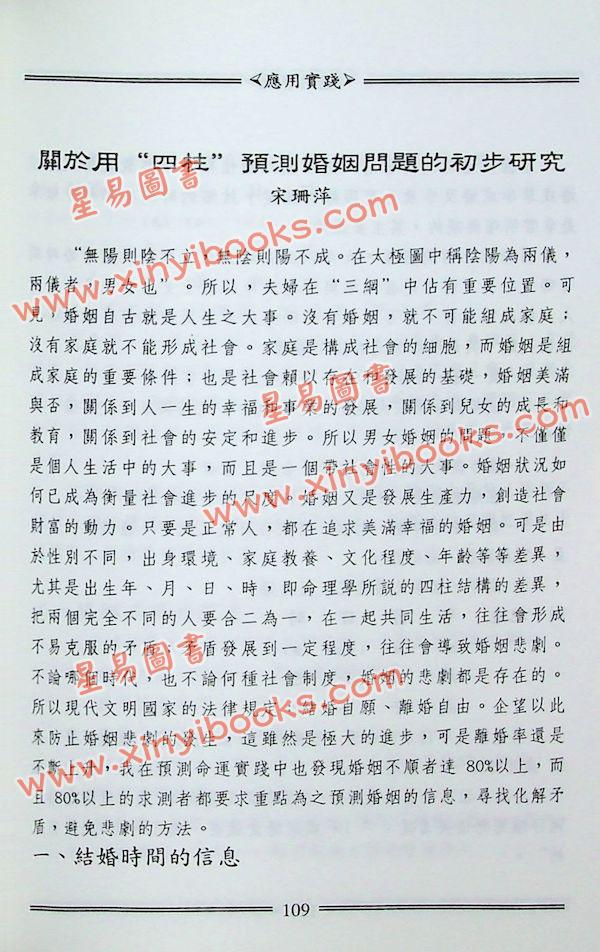 應用實踐
關於用“四柱”預測婚姻問題的初步研究
宋珊萍
“無陽則陰不立，無陰則陽不成。在太極圖中稱陰陽為兩儀，
兩儀者，男女也”。所以，夫婦在“三綱”中佔有重要位置。可
見，婚姻自古就是人生之大事。沒有婚姻，就不可能組成家庭；
沒有家庭就不能形成社會。家庭是構成社會的細胞，而婚姻是組
成家庭的重要條件；也是社會賴以存在和發展的基礎，婚姻美滿
與否，關係到人一生的幸福和事業的發展，關係到兒女的成長和
教育，關係到社會的安定和進步。所以男女婚姻的問題，不僅僅
是個人生活中的大事，而且是一個帶社會性的大事。婚姻狀況如
何已成為衡量社會進步的尺度。婚姻又是發展生產力，創造社會
財富的動力。只要是正常人，都在追求美滿幸福的婚姻。可是由
於性別不同，出身環境、家庭教養、文化程度、年齡等等差異，
尤其是出生年、月、日、時，即命理學所說的四柱結構的差異，
把兩個完全不同的人要合二為一，在一起共同生活，往往會形成
不易克服的矛盾；矛盾發展到一定程度，往往會導致婚姻悲劇。
不論哪個時代，也不論何種社會制度，婚姻的悲劇都是存在的。
所以現代文明國家的法律規定：結婚自願、離婚自由。企望以此
來防止婚姻悲劇的發生，這雖然是極大的進步，可是離婚率還是
不斷上升，我在預測命運實踐中也發現婚姻不順者達 80%以上，而
且 80%以上的求測者都要求重點為之預測婚姻的信息，尋找化解矛
盾，避免悲劇的方法。
一、結婚時間的信息
109
星易圖書
www.xinyibooks.com
星易圖書
www.xinyibooks.com
星易圖書
www.xinyibooks.com